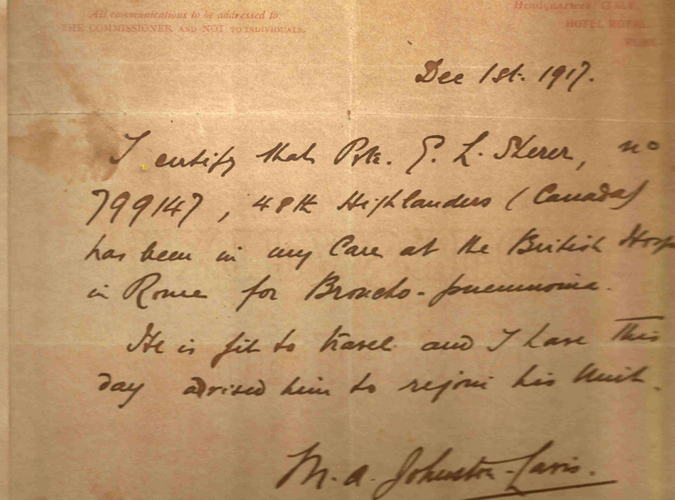 All communications to be addressed to
THE COMMISSIONER AND NOT TO INDIVIDUALS.
Headquarters
HOTEL ROYAL
ROME
Dec 1st. 1917.
I certify that Pte. E. L. Sterer, no
799147, 48th Highlanders (Canada)
has been in my Care at the British Hosp
in Rome for Broncho-pneumonia.
He is fit to travel and I have this
day advised him to rejoin his Unit.
M. A. Johnston-Lavis.